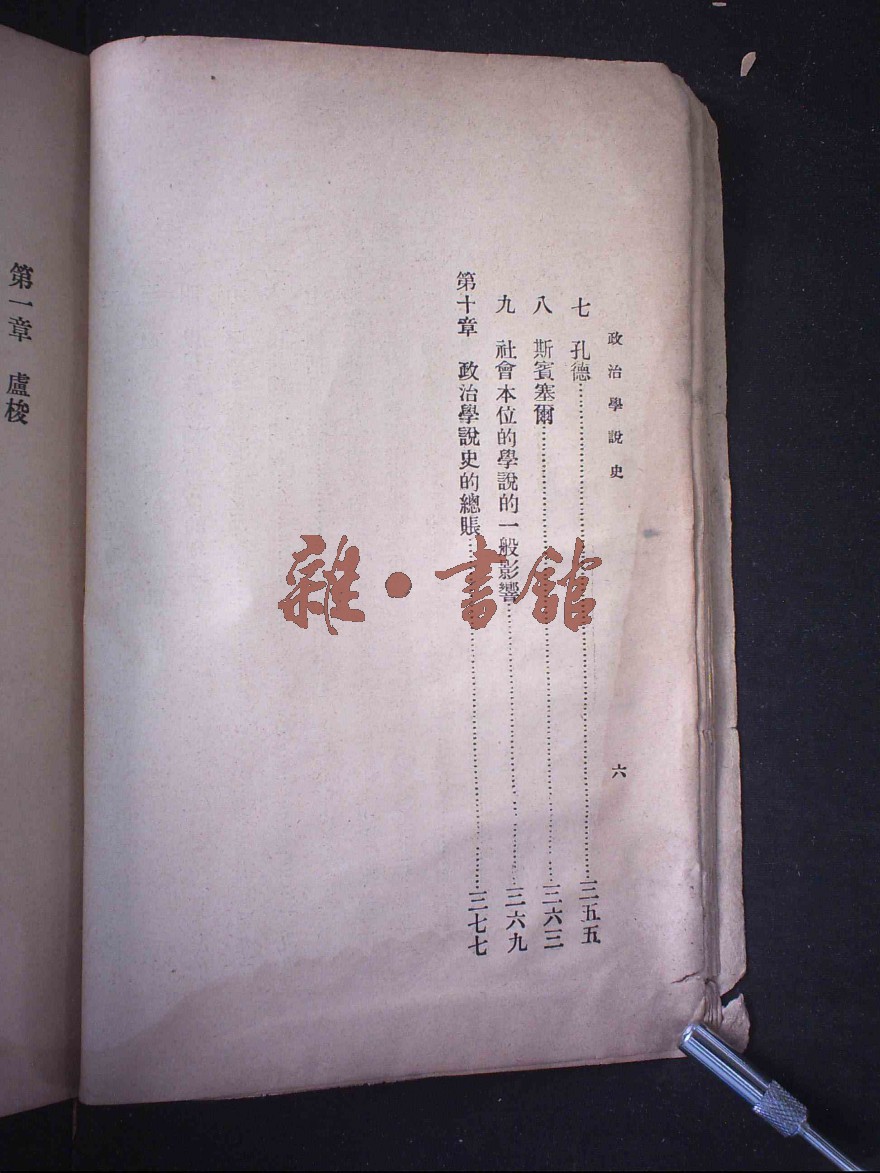 政治學說史
六
七 孔德……三五五
八 斯賓塞爾……三六三
九 社會本位的學說的一般影響……三六九
第十章 政治學說史的總賬……三七七
第一章 盧梭
雜·書館